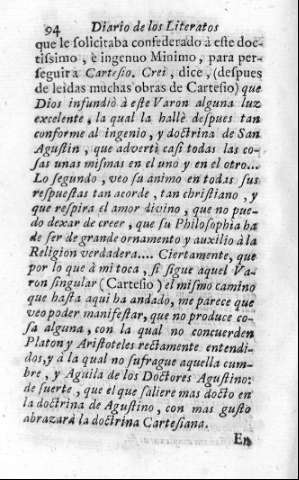 94 Diario de los Literatos
que le solicitaba confederado à este doc-
tissimo, è ingenuo Minimo, para per-
seguir à Cartesio. Crei, dice, (despues
de leidas muchas obras de Cartesio) que
Dios infundiò à este Varon alguna luz
excelente, la qual la hallè despues tan
conforme al ingenio, y doctrina de San
Agustin, que adverti casi todas las co-
sas unas mismas en el uno y en el otro...
Lo segundo, veo sa animo en todas sus
respuestas tan acorde, tan christiano, y
que respira el amor divino, que no pue-
do dexar de creer, que su Philosophia ha
de ser de grande ornamento y auxilio à la
Religion verdadera.... Ciertamente, que
por lo que à mi toca, si sigue aquel Va-
ron singular (Cartesio) el mismo camino
que hasta aqui ha andado, me parece que
veo poder manifestar, que no produce co-
sa alguna, con la qual no concuerden
Platon y Aristoteles rectamente entendi-
dos, y à la qual no sufrague aquella cum-
bre, y Aguila de los Doctores Agustino:
de suerte, que el que saliere mas docto en
la doctrina de Agustino, con mas gusto
abrazarà la doctrina Cartesiana.
En